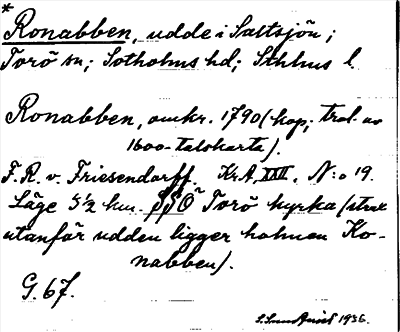 *
Ronabben, udde i Saltsjön;
Torö sn; Sotholms hd; Sthlms l.
Ronabben, omkr. 1790 (kop; trol. av
1600-talskarta).
F. R. v. Friesendorff. Kr.A, XXII, N:o 19.
Läge 5½ km. SSO Torö kyrka (strax
utanför udden ligger holmen Ko-
nabben).
G. 67.
1936.